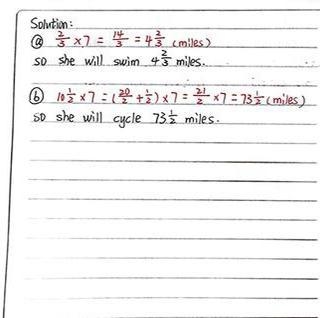 Solution:
ⓐ 2/3 × 7 = 14/3 = 4 2/3 (miles)
so she will swim 4 2/3 miles.
ⓑ 10 1/2 × 7 = (20/2 + 1/2) × 7 = 21/2 × 7 = 73 1/2 (miles)
so she will cycle 73 1/2 miles.